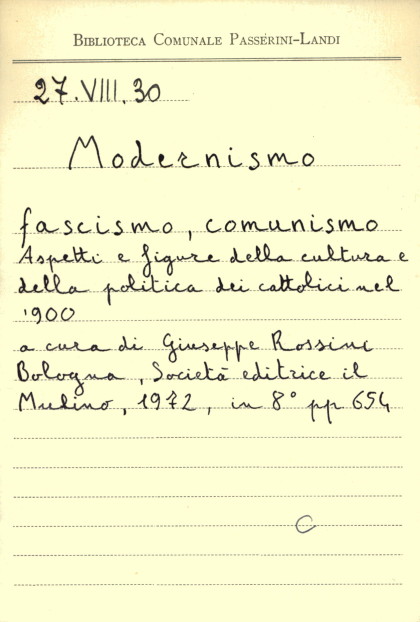 BIBLIOTECA COMUNALE PASSERINI-LANDI
27.VIII.30
Modernismo
fascismo, comunismo
Aspetti e figure della cultura e
della politica dei cattolici nel
'900
a cura di Giuseppe Rossini
Bologna, Società editrice il
Mulino, 1972, in 8° pp 654
C